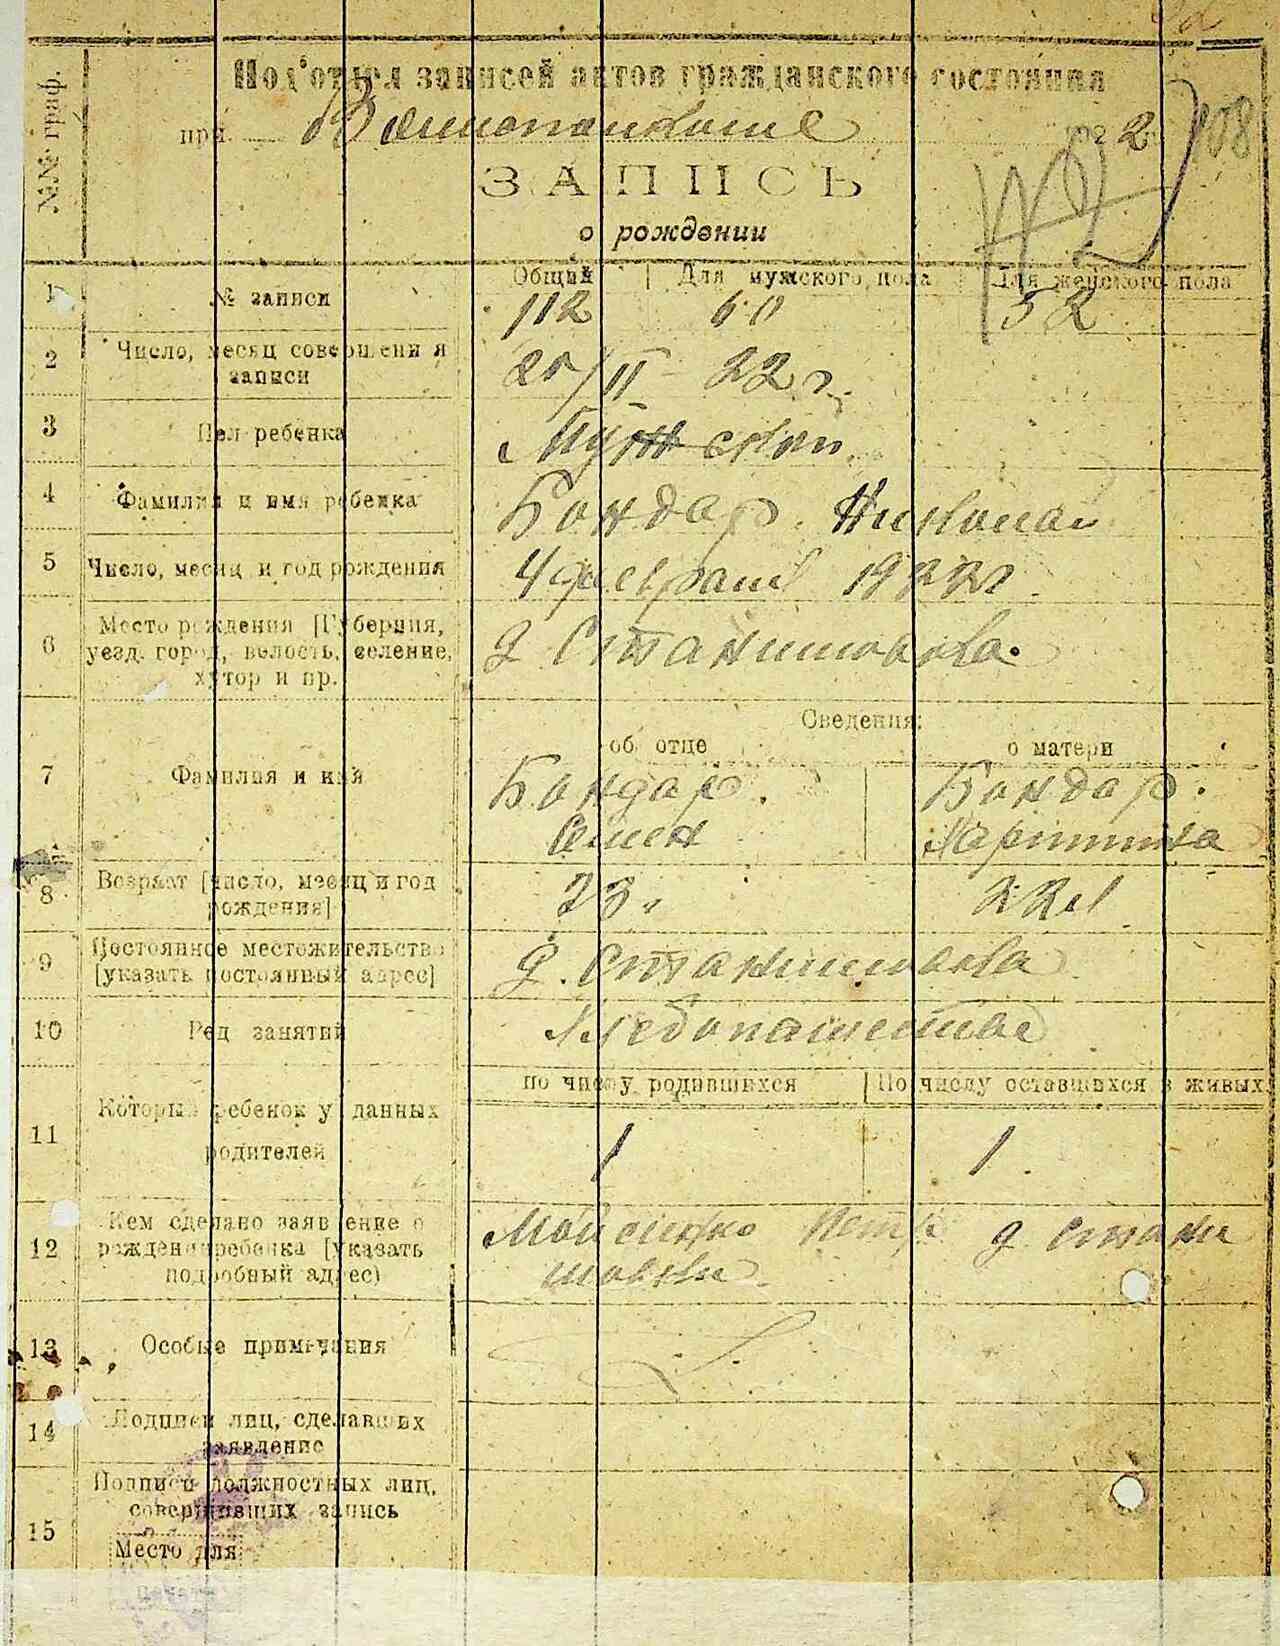 Под'отдел записей актов гражданского состояния
при
1922
108
№№ граф.
ЗАПИСЬ
о рождении
Общий Для мужского пола Для женского пола
1 № записи 112 60 52
2 Число, месяц совершения
записи
22 г.
3 Пол ребенка Мужской
4 Фамилия и имя ребенка Бондар Николай
5 Число, месяц и год рождения 4 февраля 1922 г.
6 Место рождения [Губерния,
уезд, город, волость, селение,
хутор и пр. д Станишовка.
Сведения:
об отце о матери
7 Фамилия и имя Бондар. Бондар.
Семен
8 Возраст [число, месяц и год
рождения] 23 22
9 Постоянное местожительство
[указать постоянный адрес] д. Станишовка
10 Род занятий Хлебопашество
по числу родившихся По числу оставшихся в живых
11 Который ребенок у данных
родителей 1 1.
12 Кем сделано заявление о
рождении ребенка [указать
подробный адрес)
Мойсиенко Петр д Стани
шовки
13 Особые примечания
14 Подписи лиц, сделавших
заявление
15 Подписи должностных лиц,
совершивших запись
Место для
печати